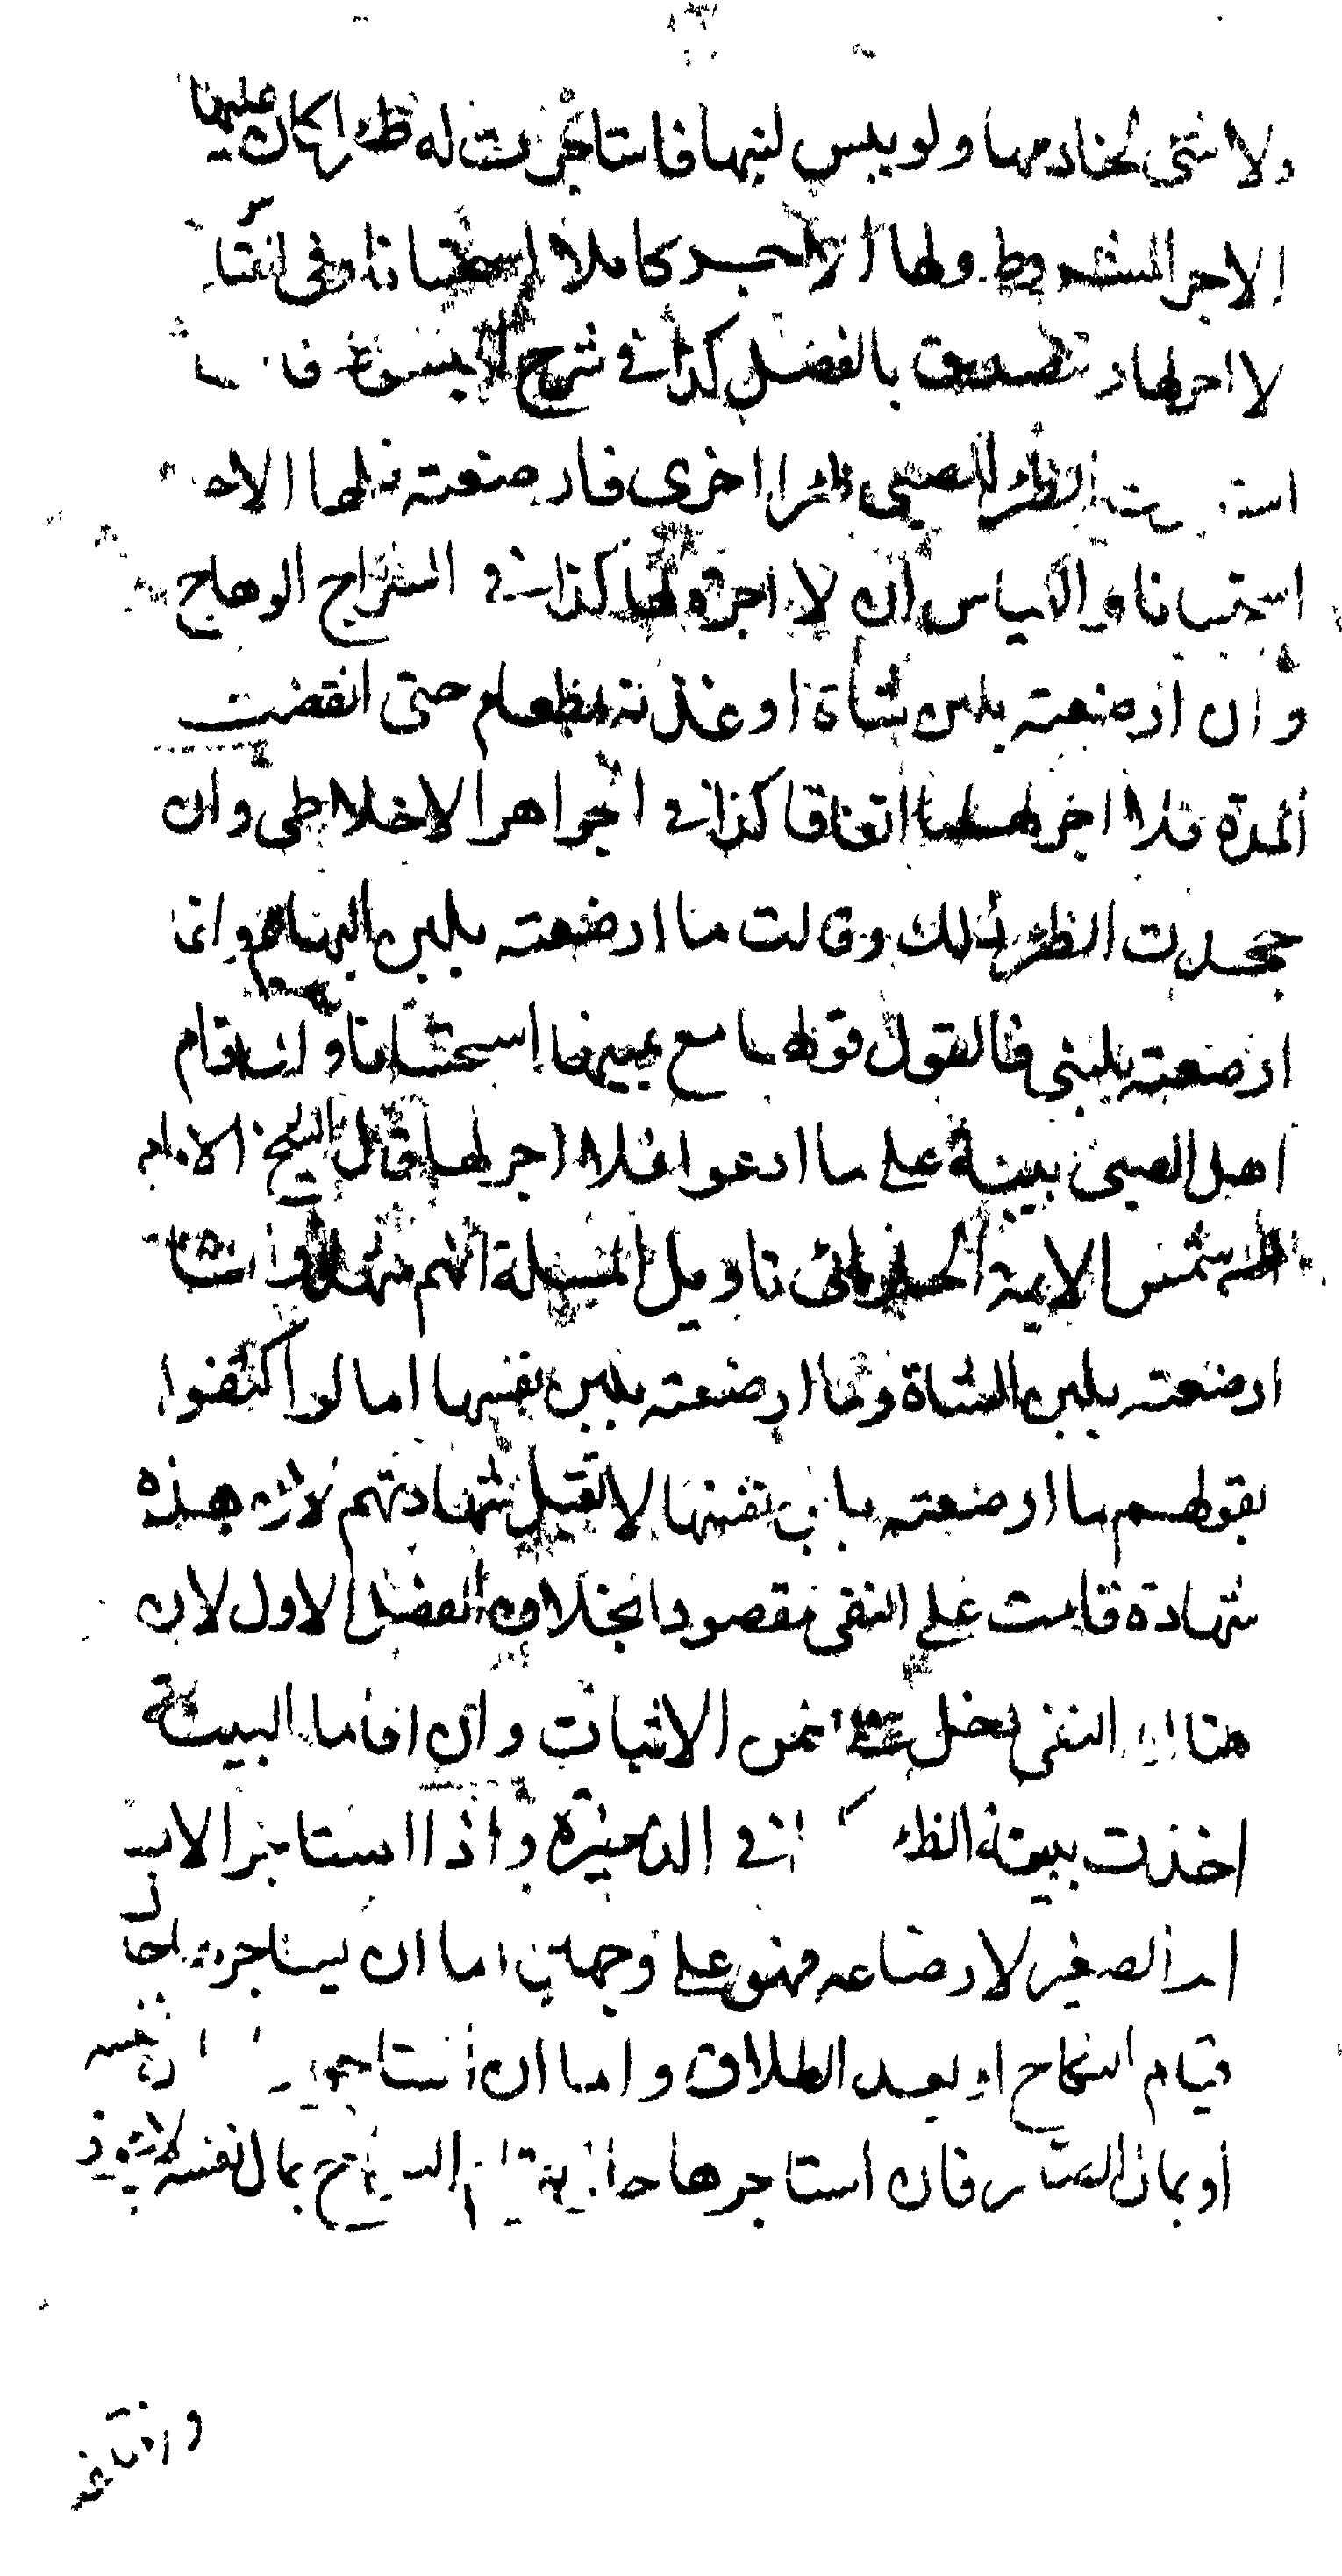 ولا شئ لخادمها ولو يبس لبنها فاستاجرت له ظئرا كان عليها
الاجر المشروط ولها الاجر كاملا استحسانا وفي القياس
لا اجر لها وتتصدق بالفضل كذا في شرح المبسوط فان
استاجرت الظئر للصبي ظئرا اخرى فارضعته فلها الاجر
استحسانا والقياس ان لا اجر لها كذا في السراج الوهاج
وان ارضعته بلبن شاة او غذته بطعام حتى انقضت
المدة فلا اجر لها اتفاقا كذا في الجواهر الاخلاطي وان
جحدت الظئر ذلك وقالت ما ارضعته بلبن البهائم وانما
ارضعته بلبني فالقول قولها مع يمينها استحسانا وان اقام
اهل الصبي بينة على ما ادعوا فلا اجر لها قال الشيخ الامام
شمس الايمة الحلواني تاويل المسئلة انهم شهدوا انها
ارضعته بلبن الشاة وما ارضعته بلبن نفسها اما لو اكتفوا
بقولهم ما ارضعته بلبن نفسها لا تقبل شهادتهم لان هذه
شهادة قامت على النفى مقصودا بخلاف الفصل الاول لان
هناك النفى دخل في ضمن الاثبات وان اقاما البينة
اخذت ببينة الظئر كذا في الذخيرة واذا استاجر الاب
ام الصغير لارضاعه فهو على وجهين اما ان يستاجر حال
قيام النكاح او بعد الطلاق واما ان استاجر نفسه
او بمال الصغير فان استاجرها حال قيام النكاح بمال نفسه لا يجوز